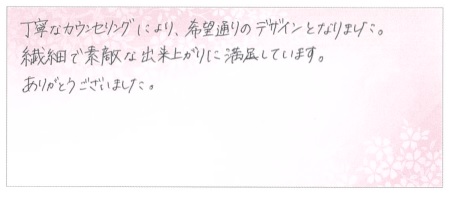 丁寧なカウンセリングにより、希望通りのデザインとなりました。
繊細で素敵な出来上がりに満足しています。
ありがとうございました。